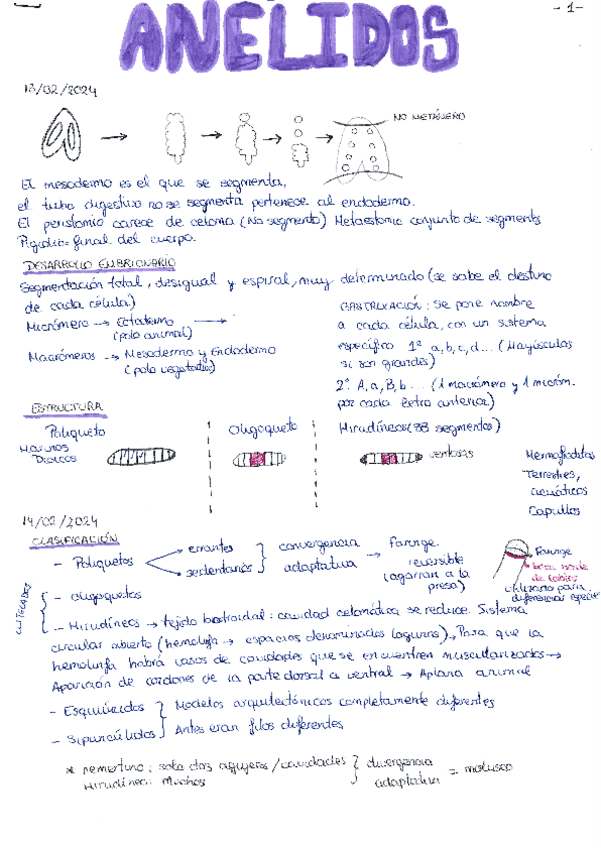 - 1 -
ANELIDOS
13/02/2024
NO METÁMERO
El mesodermo es el que se segmenta,
el tubo digestivo no se segmenta pertenece al endodermo.
El peristomio carece de celoma (No segmento) Metastomio conjunto de segments
Pigidio = final del cuerpo.
DESARROLLO EMBRIONARIO
Segmentación total, desigual y espiral, muy determinado (se sabe el destino
de cada célula)
Micrómero → Ectodermo →
(polo animal)
Macrómeros → Mesodermo y Endodermo
(polo vegetativo)
GASTRULACIÓN: Se pone nombre
a cada célula, con un sistema
específico 1º a, b, c, d... (Mayúsculas
si son grandes)
2º A, a, B, b... (1 macrómero y 1 micróm.
por cada letra anterior)
ESTRUCTURA
Poliqueto
Marinos
Dioicos
Oligoqueto
Hirudíneos (33 segmentos)
ventosas
Hermafroditas
Terrestres,
acuáticos
Capullos
14/02/2024
CLASIFICACIÓN
- Poliquetos
errantes
sedentarios
convergencia
adaptativa
→ Faringe
reversible
(agarran a la
presa)
Faringe
utilizado para
diferenciar especies
CLITELADOS
- Oligoquetos
- Hirudíneos → tejido botrioidal: cavidad celomática se reduce. Sistema
circular abierto (hemolinfa → espacios denominados lagunas), Para que la
hemolinfa habrá vasos de cavidades que se encuentren muscularizados →
Aparición de cordones de la parte dorsal a ventral → Aplana animal
- Equiúridos
- Sipuncúlidos
Modelos arquitectónicos completamente diferentes
Antes eran filos diferentes
* nemertino: solo dos agujeros / cavidades
Hirudíneo: Muchos
divergencia
adaptativa
= molusco